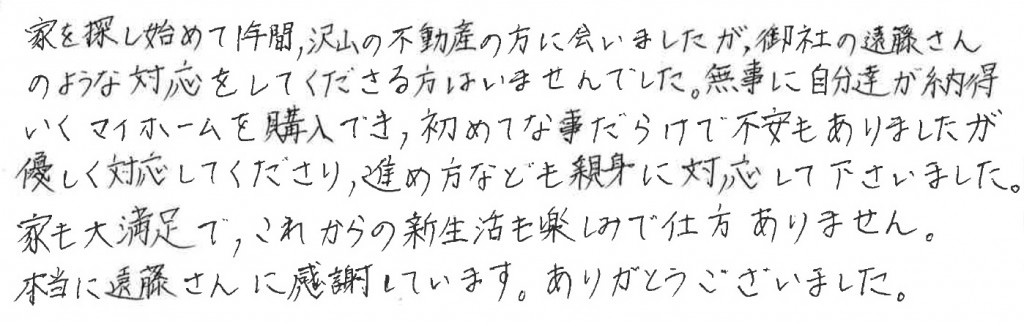 家を探し始めて1年間,沢山の不動産の方に会いましたが,御社の遠藤さん
のような対応をしてくださる方はいませんでした。無事に自分達が納得
いくマイホームを購入でき,初めてな事だらけで不安もありましたが
優しく対応してくださり,進め方なども親身に対応して下さいました。
家も大満足で,これからの新生活も楽しみで仕方ありません。
本当に遠藤さんに感謝しています。ありがとうございました。